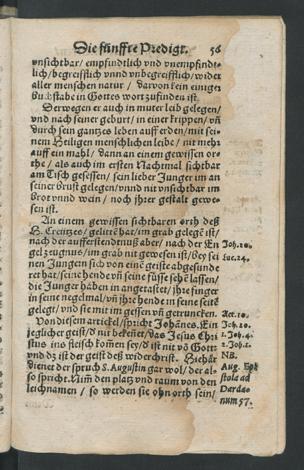 Die fünffte Predigt. 56
vnsichtbar / empfindtlich vnd vnempfindt-
lich / begreifflich vnnd vnbegreifflich / wider
aller menschen natur / darvon kein einiger
Buchstabe in Gottes wort zufinden ist.
Derwegen er auch in muter leib gelegen /
vnd nach seiner geburt / in einer krippen / vñ
durch sein gantzes leben auff erden / mit sei-
nem Heiligen menschlichen leibe / nit mehr
auff ein mahl / dann an einem gewissen or-
the / als auch im ersten Nachtmal sichtbar
am Tisch gesessen / sein lieber Junger im an
seiner brust gelegen / vnnd nit vnsichtbar im
Brot vnnd wein / noch jhrer gestalt gewe-
sen ist.
An einem gewissen sichtbaren orth deß
H. Creützes / gelitté hat / im grab gelegē ist /
nach der aufferstendtnuß aber / nach der En Joh. 20.
gel zeugnus / im grab nit gewesen ist / bey sei Luc. 24.
nen Jungern sich von eine geiste abgesunde
ret hat / seine hende vñ seine füsse sehē lassen /
die Junger haben in angetastet / jhre finger
in seine negelmal / vñ jhre hende in seine seitē
gelegt / vnd sie mit im gessen vñ getruncken. Act. 10.
Von diesem artickel / sprichr Johānes. Ein Joh. 20.
jeglicher geist / d' nit bekenet / das Jesus Chri 1. Joh. 4.
stus ins fleisch kom̄en sey / d' ist nit vō Gott 2. Joh. 1.
vnd dz ist der geist deß widerchrist. Hiehär NB.
dienet der spruch S. Augustin gar wol / der al- Aug. Epi
so spricht. Nim̄ den platz vnd raum von den stola ad
leichnamen / so werden sie ohn orth sein / Darda-
num 57.